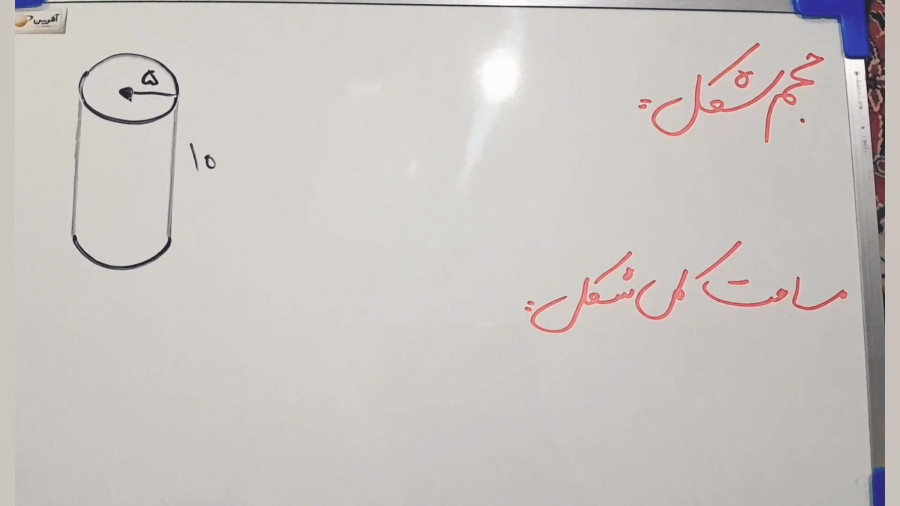 آفرین
۵
حجم شکل :
۱۰
مساحت کل شکل :